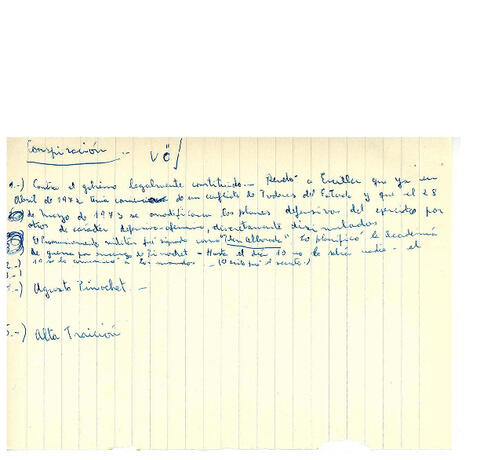 Conspiración .-
1.-) Contra el gobierno legalmente constituido.- Recordó a Escilla que ya en
Abril de 1972 tenía de un conflicto de Poderes del Estado y que el 28
de Marzo de 1973 se modificaron los planes defensivos del ejército por
otros de carácter defensivo-ofensivo, directamente disimulados
El Pronunciamiento militar fue signado como "Plan Alborada" lo planificó la Academia
de guerra por Pinochet - Hasta el día 10 no lo sabía nadie - el
2.-) 10 se lo comunicó a los mandos
3.-)
4.-) Agusto Pinochet.-
5.-) Alta Traición